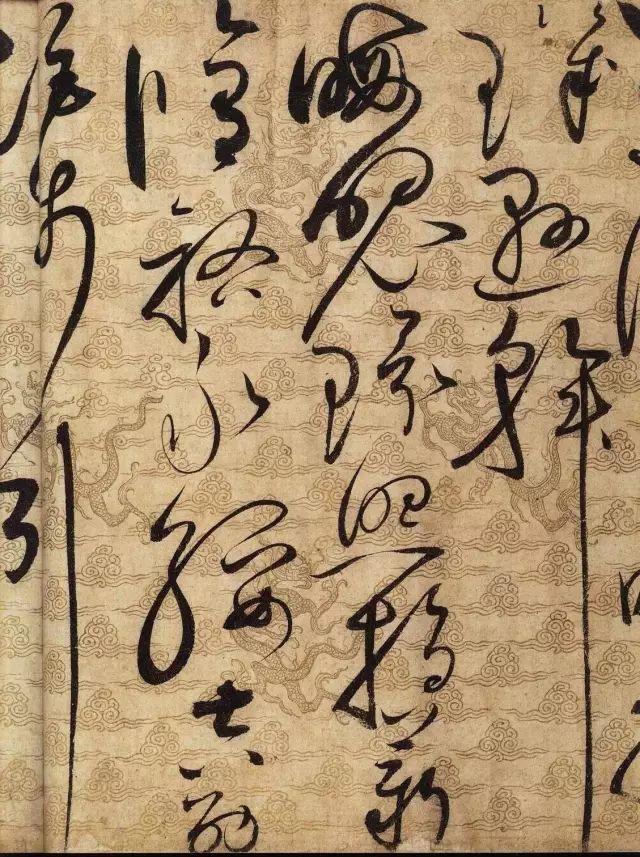 璣懸斡
晦魄環照指薪
脩祜永綏吉劭
矩步引